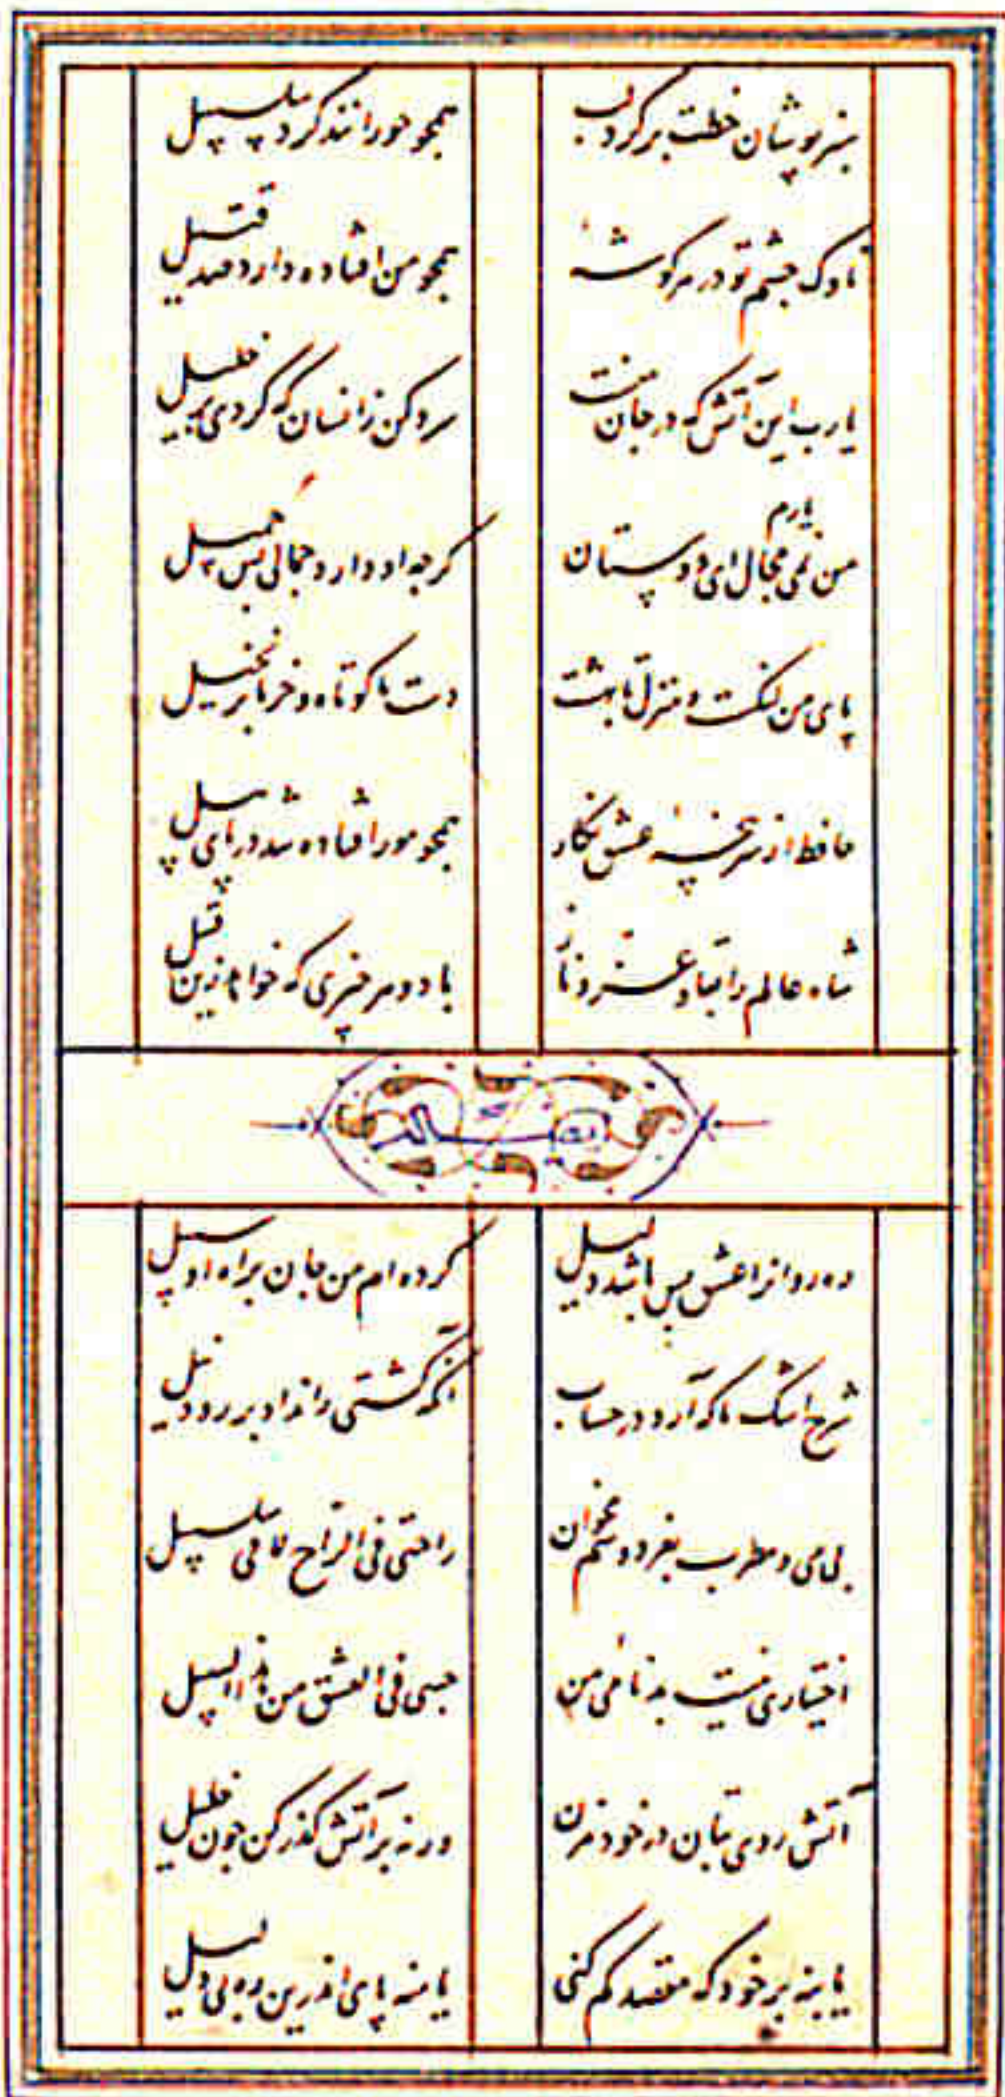 سبزپوشان خطت بر گرد لب
همچو حورانند گرد سلسبیل
ناوک چشم تو در هر گوشهٔ
همچو من افتاده دارد صد قتیل
یارب این آتش که در جان منست
سرد کن زانسان که کردی بر خلیل
من نمی‌یارم مجال ای دوستان
گرچه او دارد جمالی بس جمیل
پای من لنگست و منزل تا بهشت
دست ما کوتاه و خرما بر نخیل
حافظ از سر پنجهٔ عشق نگار
همچو مور افتاده شد در پای پیل
شاه عالم را بقا و عز و ناز
باد و هر چیزی که خواهد زین قبیل
وله
ره روانرا عشق بس باشد دلیل
کرده‌ام من جان براه او سبیل
شرح اشک ما که آرد در حساب
آنکه کشتی راند او بر رود نیل
بی می و مطرب بفردوسم مخوان
راحتی فی الراح لا فی سلسبیل
اختیاری نیست بدنامی من
حسبی فی العشق من هذا السبیل
آتش روی بتان در خود مزن
ورنه بر آتش گذر کن چون خلیل
یا بنه بر خود که مقصد گم کنی
یا منه پای اندرین ره بی دلیل